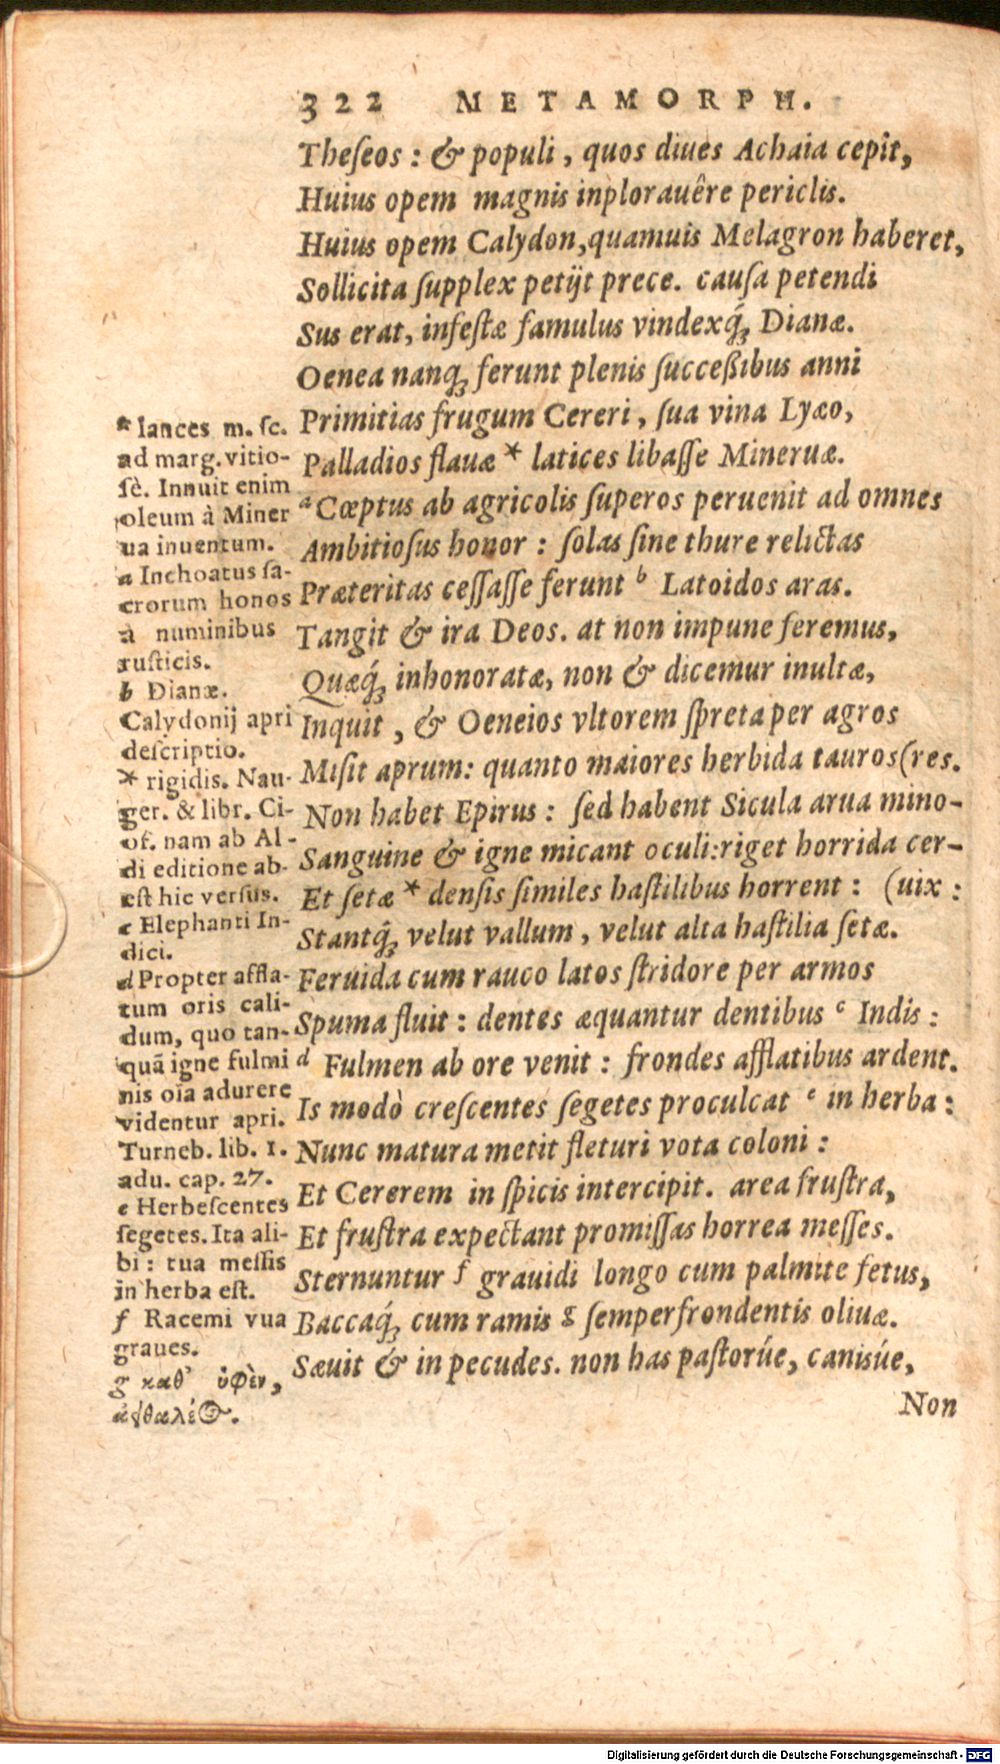 322 METAMORPH.
Theſeos: & populi, quos diues Achaia cepit,
Huius opem magnis inplorauêre periclis.
Huius opem Calydon, quamuis Melagron haberet,
Sollicita ſupplex petijt prece. cauſa petendi
Sus erat, infeſtæ famulus vindexq́; Dianæ.
Oenea nanq; ferunt plenis ſucceßibus anni
Primitias frugum Cereri, ſua vina Lyæo,
Palladios flauæ * latices libaſſe Mineruæ.
a Cœptus ab agricolis ſuperos peruenit ad omnes
Ambitioſus honor: ſolas ſine thure relictas
Præteritas ceſſaſſe ferunt b Latoidos aras.
Tangit & ira Deos. at non impune feremus,
Quæq́; inhonoratæ, non & dicemur inultæ,
Inquit, & Oeneios vltorem ſpreta per agros
Miſit aprum: quanto maiores herbida tauros (res.
Non habet Epirus: ſed habent Sicula arua mino-
Sanguine & igne micant oculi: riget horrida cer-
Et ſetæ * denſis ſimiles haſtilibus horrent: (uix:
Stantq́; velut vallum, velut alta haſtilia ſetæ.
Feruida cum rauco latos ſtridore per armos
Spuma fluit: dentes æquantur dentibus c Indis:
d Fulmen ab ore venit: frondes afflatibus ardent.
Is modò creſcentes ſegetes proculcat e in herba:
Nunc matura metit fleturi vota coloni:
Et Cererem in ſpicis intercipit. area fruſtra,
Et fruſtra expectant promiſſas horrea meſſes.
Sternuntur f grauidi longo cum palmite fetus,
Baccaq́; cum ramis g ſemperfrondentis oliuæ.
Sæuit & in pecudes. non has paſtorúe, canisúe,
Non
* lances m. ſc.
ad marg. vitio-
ſè. Innuit enim
oleum à Miner
ua inuentum.
a Inchoatus ſa-
crorum honos
à numinibus
ruſticis.
b Dianæ.
Calydonij apri
deſcriptio.
* rigidis. Nau-
ger. & libr. Ci-
of. nam ab Al-
di editione ab-
eſt hic verſus.
c Elephanti In-
dici.
d Propter affla-
tum oris cali-
dum, quo tan-
quā igne fulmi
nis oīa adurere
videntur apri.
Turneb. lib. 1.
adu. cap. 27.
e Herbeſcentes
ſegetes. Ita ali-
bi: tua meſſis
in herba eſt.
f Racemi vua
graues.
g καθ' ὑφὲν,